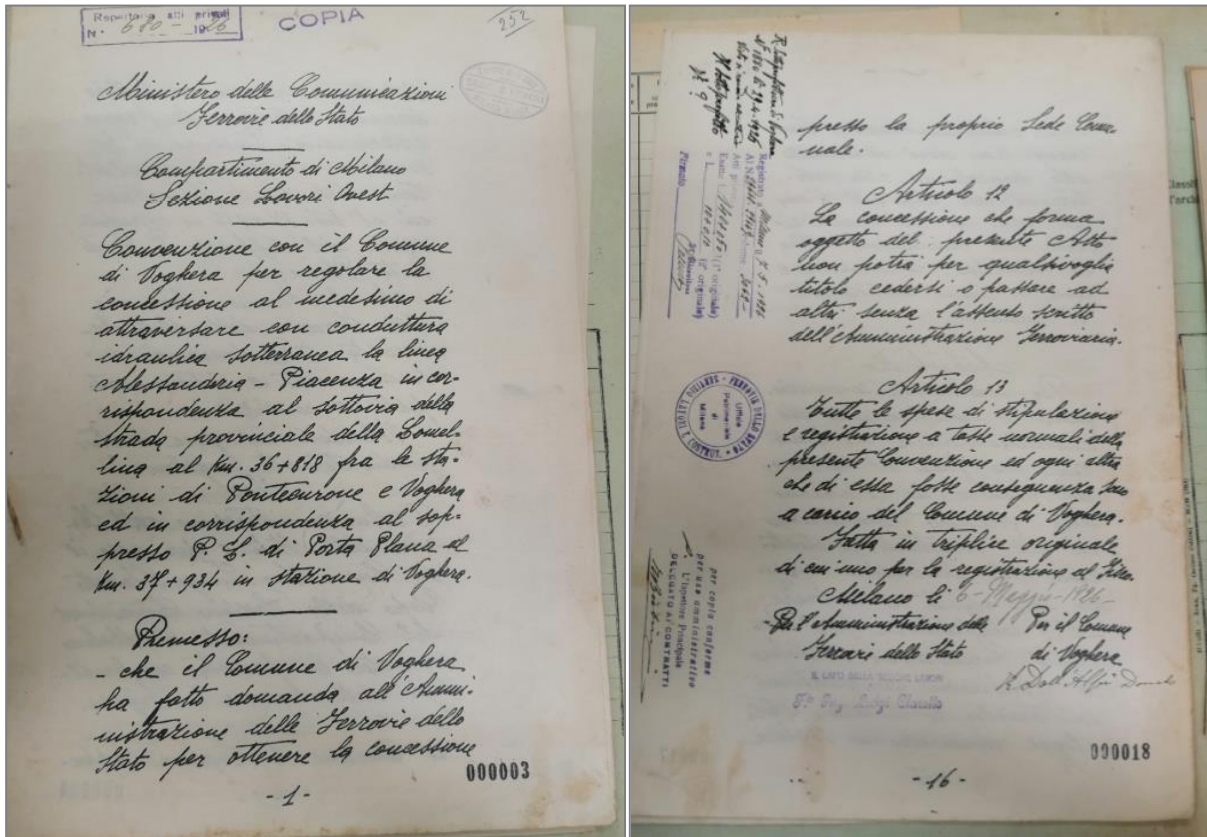 Repertorio atti privati
N. 680 - 1926
COPIA
252
Ministero delle Comunicazioni
Ferrovie dello Stato
Compartimento di Milano
Sezione Lavori Ovest
Convenzione con il Comune
di Voghera per regolare la
concessione al medesimo di
attraversare con conduttura
idraulica sotterranea la linea
Alessandria - Piacenza in cor-
rispondenza al sottovia della
strada provinciale della Lomel-
lina al Km. 36+818 fra le sta-
zioni di Pontecurone e Voghera
ed in corrispondenza al sop-
presso P. L. di Porta Plana al
Km. 37+934 in stazione di Voghera.
Premesso:
- che il Comune di Voghera
ha fatto domanda all'Ammi-
nistrazione delle Ferrovie dello
Stato per ottenere la concessione
000003
- 1 -
presso la propria Sede Comu-
nale.
Articolo 12
La concessione che forma
oggetto del presente Atto
non potrà per qualsivoglia
titolo cedersi o passare ad
altri senza l'assenso scritto
dell'Amministrazione Ferroviaria.
Articolo 13
Tutte le spese di stipulazione
e registrazione a tasse normali della
presente Convenzione ed ogni altra
che di essa fosse conseguenza sono
a carico del Comune di Voghera.
Fatta in triplice originale
di cui uno per la registrazione al Fisco.
Milano li 6 - Maggio - 1926
Per l'Amministrazione delle
Ferrovie dello Stato
Per il Comune
di Voghera
IL CAPO DELLA SEZIONE LAVORI
Fto Ing. Luigi
000018
- 16 -
R. Sottoprefettura di Voghera
Il Sottoprefetto
Registrato a Milano
Atti privati
Esatte L.
(1° originale)
(2° originale)
Firmato
FERROVIE DELLO STATO
Ufficio
Patrimoniale
di
Milano
per copia conforme
per uso amministrativo
L'Ispettore Principale
DELEGATO AI CONTRATTI